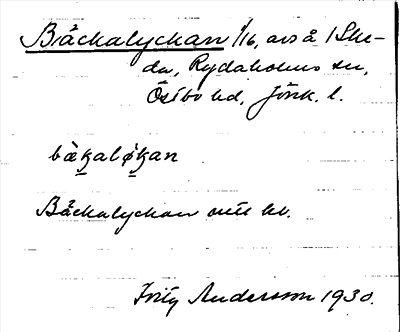 Bäckalyckan 1/16, avs å 1 Ske-
da, Rydaholms sn,
Östbo hd, Jönk. l.
bäkaløkan
Bäckalyckan outt kt.
Fritz Andersson 1930.